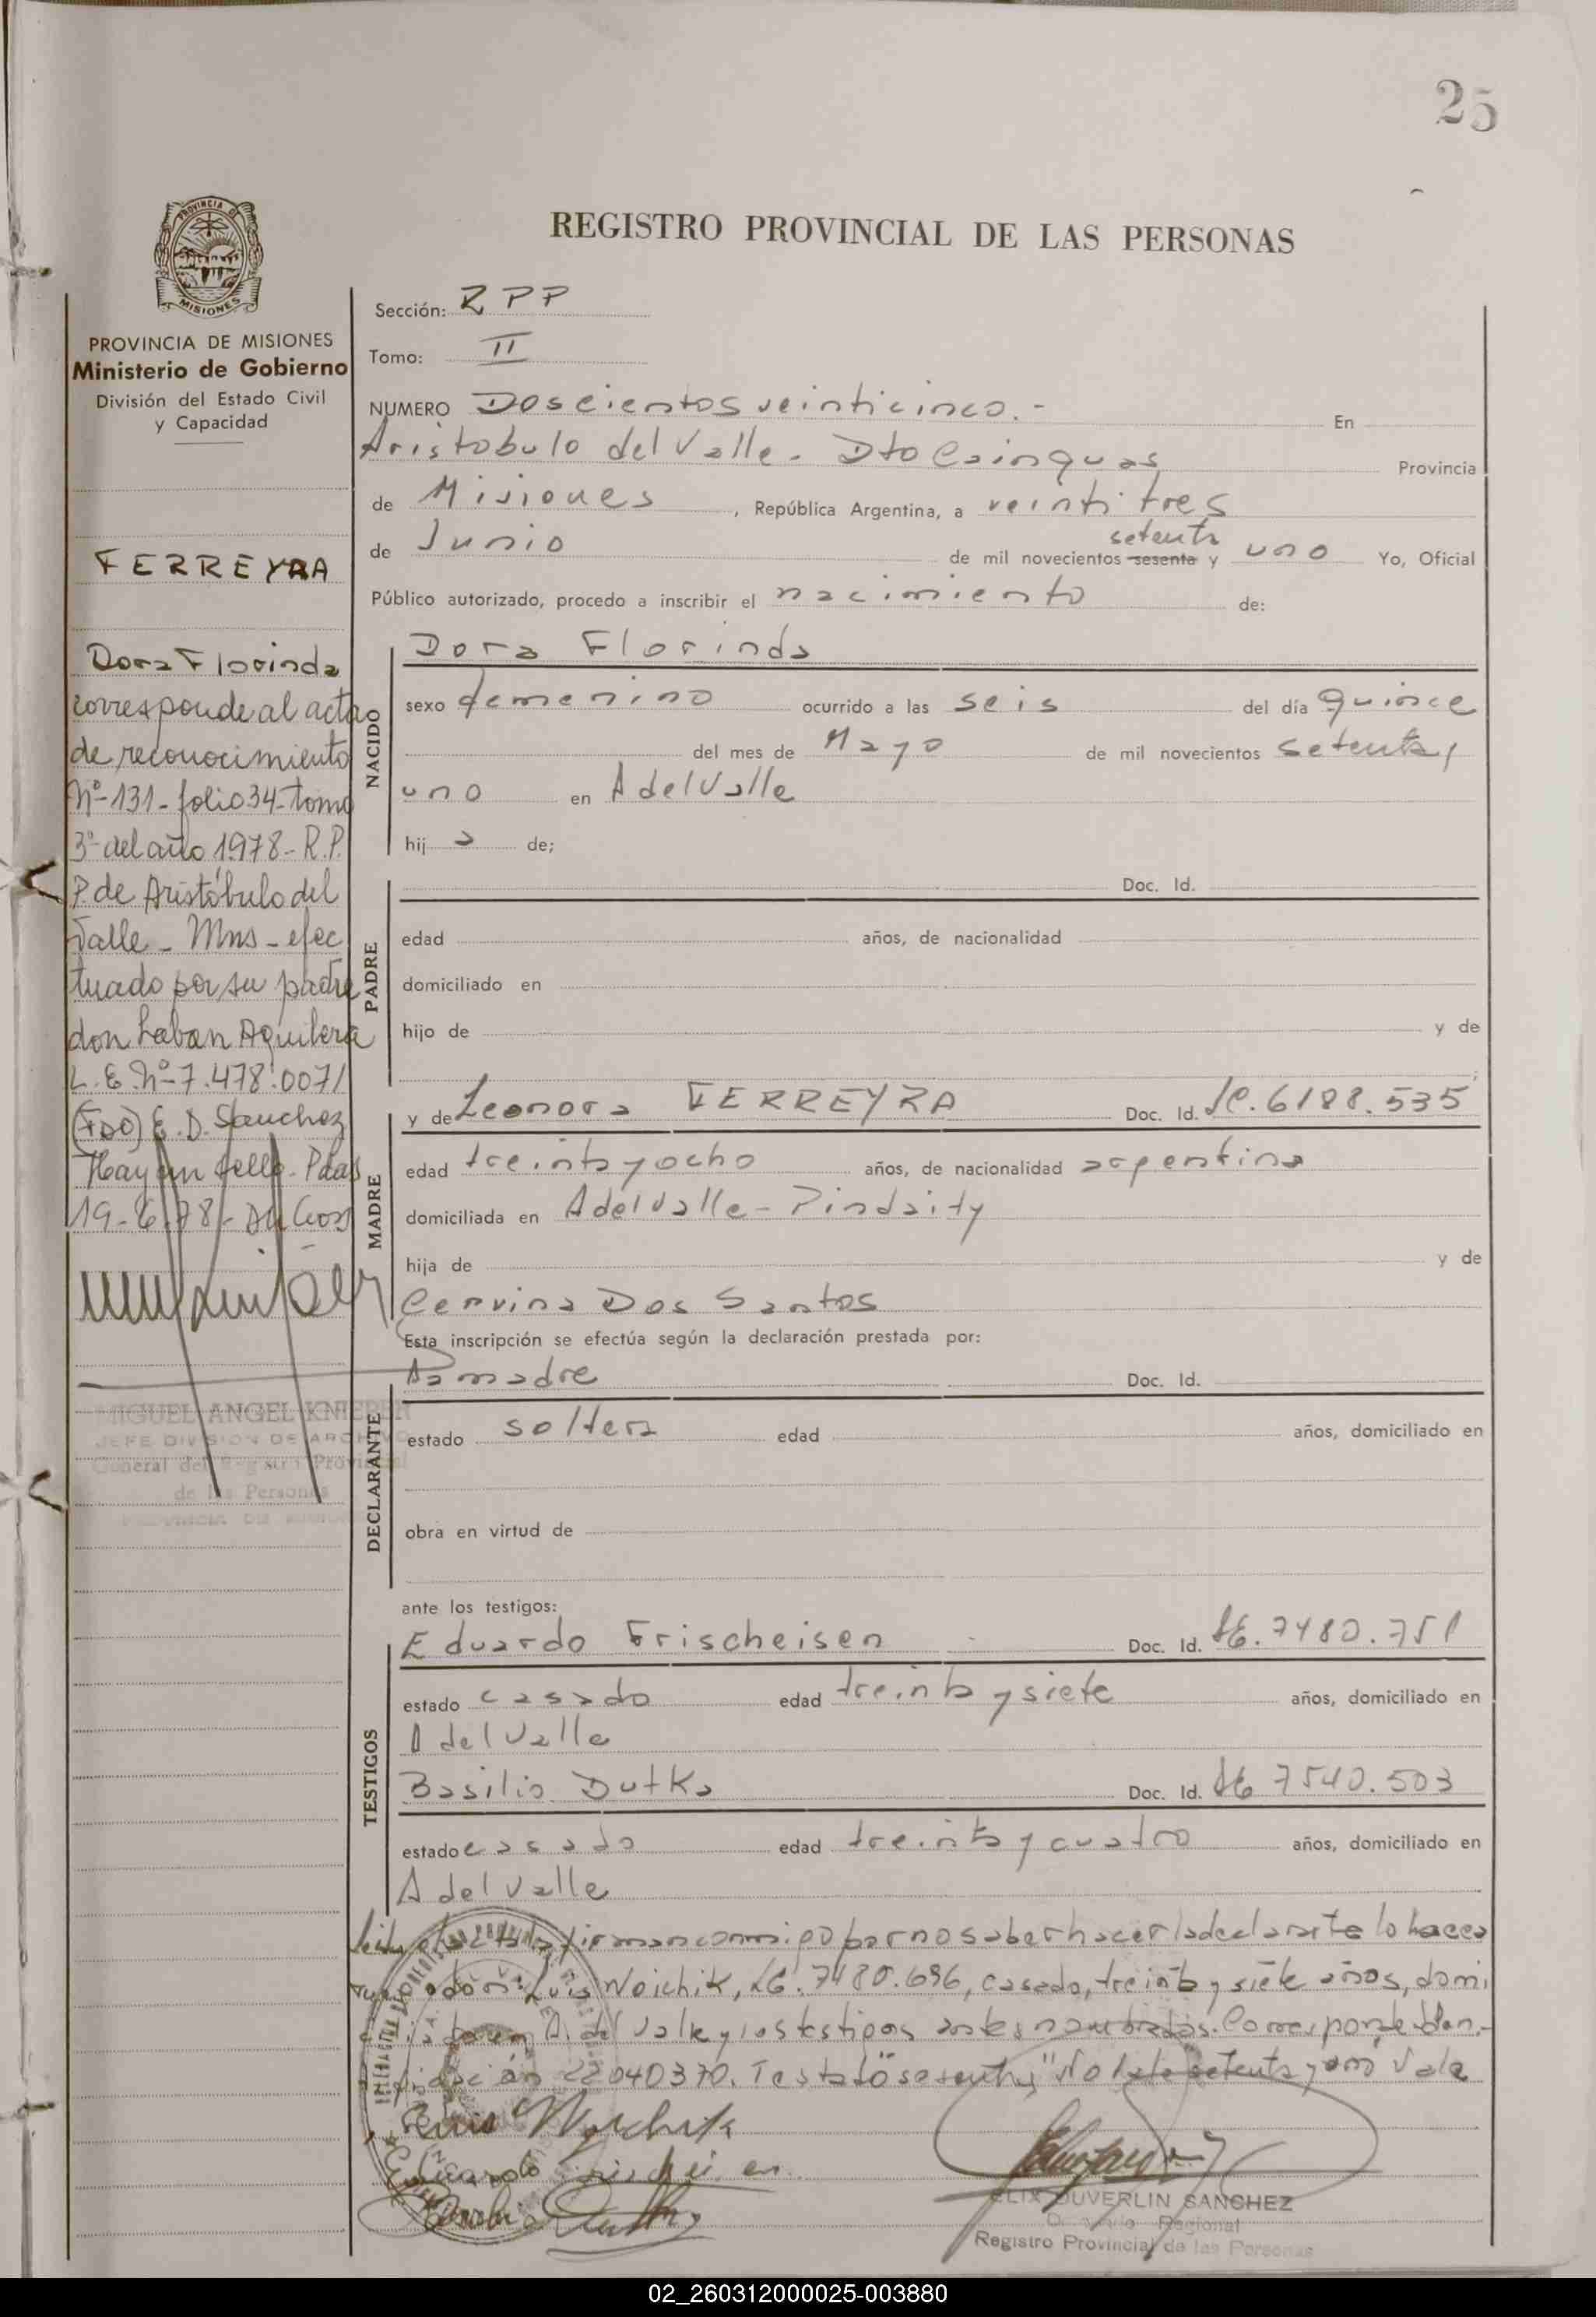 25
REGISTRO PROVINCIAL DE LAS PERSONAS
PROVINCIA DE
MISIONES
PROVINCIA DE MISIONES
Ministerio de Gobierno
División del Estado Civil
y Capacidad
FERREYRA
Dora Florinda
corresponde al acta
de reconocimiento
Nº-131-folio 34-tomo
3º del año 1978-R.P.
P. de Aristóbulo del
Valle - Mns - efec
tuado por su padre
don Laban Aquilera
L.E. Nº-7.478.007/
(FDO) E.D. Sanchez
Hay un sello. Pdas
19-6-78-
MIGUEL ANGEL KNIEPER
JEFE DIVISION DE ARCHIVO
General del Registro Provincial
de las Personas
Sección: RPP
Tomo: II
NUMERO Doscientos veinticinco.- En
Aristobulo del Valle - Dto Cainguas Provincia
de Misiones, República Argentina, a veintitres
setenta
de Junio de mil novecientos sesenta y uno Yo, Oficial
Público autorizado, procedo a inscribir el nacimiento de:
NACIDO
Dora Florinda
sexo femenino ocurrido a las seis del día quince
del mes de Mayo de mil novecientos setenta y
uno en A del Valle
hij a de;
PADRE
Doc. Id.
edad años, de nacionalidad
domiciliado en
hijo de y de
MADRE
y de Leonora FERREYRA Doc. Id. lc. 6188.535
edad treinta y ocho años, de nacionalidad argentina
domiciliada en A del Valle - Pindaity
hija de y de
Cervina Dos Santos
Esta inscripción se efectúa según la declaración prestada por:
DECLARANTE
La madre Doc. Id.
estado soltera edad años, domiciliado en
obra en virtud de
ante los testigos:
TESTIGOS
Eduardo Frischeisen Doc. Id. LE. 7480.751
estado casado edad treinta y siete años, domiciliado en
A del Valle
Basilio Dutka Doc. Id. LE 7540.503
estado casado edad treinta y cuatro años, domiciliado en
A del Valle
firman conmigo por no saber hacer la declarante lo hace a
don: Luis Woichik, LE. 7480.696, casado, treinta y siete años, domi
en A. del Valle y los testigos antes nombrados. Corresponde Iden-
22040370. Testado "sesenta y" No Vale setenta y uno Vale
Luis Woichik
Eduardo Frischeisen
ELIX DUVERLIN SANCHEZ
Regional
Registro Provincial de las Personas
02_260312000025-003880